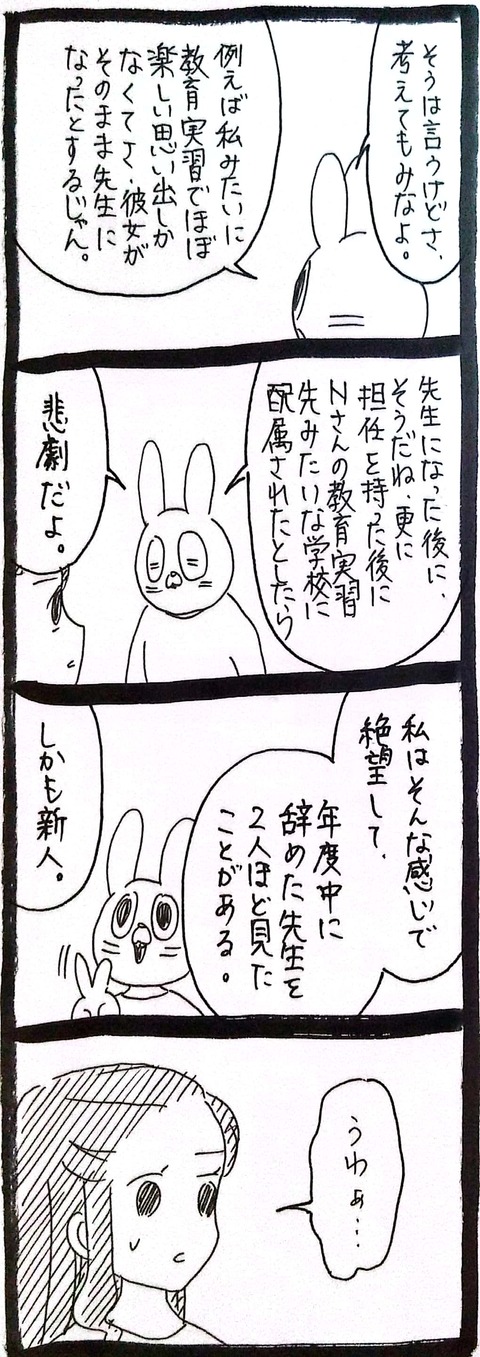 そうは言うけどさ、
考えてもみなよ。
例えば私みたいに
教育実習でほぼ
楽しい思い出しか
なくてさ、彼女が
そのまま先生に
なったとするじゃん。
先生になった後に、
そうだね、更に
担任を持った後に
Nさんの教育実習
先みたいな学校に
配属されたとしたら
悲劇だよ。
私はそんな感じで
絶望して、
年度中に
辞めた先生を
2人ほど見た
ことがある。
しかも新人。
うわぁ…